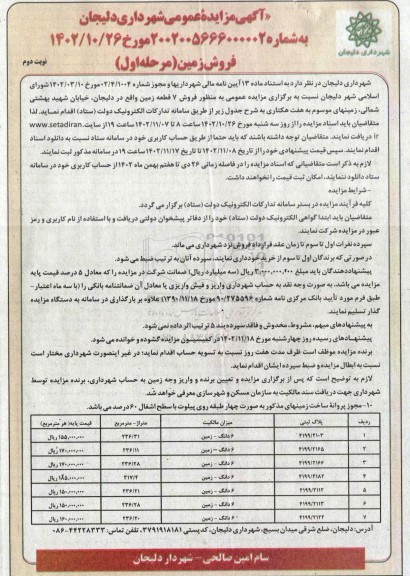 «آگهی مزایدهٔ عمومی شهرداری دلیجان
به شماره ۲۰۰۲۰۰۵۶۶۶۰۰۰۰۰۲ مورخ ۱۴۰۲/۱۰/۲۶
فروش زمین (مرحله اول)
نوبت دوم
شهرداری دلیجان
شهرداری دلیجان در نظر دارد به استناد ماده ۱۳ آیین نامه مالی شهرداریها و مجوز شماره ۰۲/۴/۱۰۰۴ مورخ ۱۴۰۲/۰۳/۱۰ شورای
اسلامی شهر دلیجان نسبت به برگزاری مزایده عمومی به منظور فروش ۷ قطعه زمین واقع در دلیجان، خیابان شهید بهشتی
شمالی، زمینهای موسوم به هفت هکتاری به شرح جدول زیر از طریق سامانه تدارکات الکترونیک دولت (ستاد) اقدام نماید. لذا
متقاضیان باید اسناد مزایده را از روز سه شنبه مورخ ۱۴۰۲/۱۰/۲۶ ساعت ۸ تا ۱۴۰۲/۱۱/۰۷ ساعت ۱۹ از سایت www.setadiran.
ir دریافت نمایند. متقاضیان توجه داشته باشند که باید حتما از طریق حساب کاربری خود در سامانه ستاد نسبت به دانلود اسناد
اقدام نمایند. سپس قیمت پیشنهادی خود را از تاریخ ۱۴۰۲/۱۱/۰۸ تا تاریخ ۱۴۰۲/۱۱/۱۷ ساعت ۱۹ در سامانه مذکور ثبت نمایند.
لازم به ذکر است متقاضیانی که اسناد مزایده را در فاصله زمانی ۲۶ دی تا هفتم بهمن ماه ۱۴۰۲ از حساب کاربری خود در سامانه
ستاد دانلود ننمایند، امکان ثبت قیمت را نخواهند داشت.
- شرایط مزایده
کلیه فرآیند مزایده در بستر سامانه تدارکات الکترونیک دولت (ستاد) برگزار می گردد.
متقاضیان باید ابتدا گواهی الکترونیک دولت (ستاد) خود را از دفاتر پیشخوان دولتی دریافت و با استفاده از نام کاربری و رمز
عبور در مزایده شرکت نمایند.
سپرده نفرات اول تا سوم تا زمان عقد قرارداد فروش نزد شهرداری می ماند.
در صورتی که برندگان اول تا سوم از خرید خودداری نمایند، سپرده آنان به ترتیب ضبط می شود.
پیشنهاددهندگان باید مبلغ ۳,۰۰۰,۰۰۰,۰۰۰ ریال (سه میلیارد ریال) ضمانت شرکت در مزایده را که معادل ۵ درصد قیمت پایه
مزایده می باشد، به صورت وجه نقد به حساب شهرداری واریز و فیش واریزی یا معادل آن ضمانتنامه بانکی را (با سه ماه اعتبار-
طبق فرم مورد تأیید بانک مرکزی نامه شماره ۹۰/۲۷۵۵۹۶ مورخ ۱۳۹۰/۱۱/۱۸) علاوه بر بارگذاری در سامانه به دستگاه مزایده
گذار تسلیم نمایند.
به پیشنهادهای مبهم، مشروط، مخدوش و فاقد سپرده بند ۵ ترتیب اثر داده نمی شود.
پیشنهادهای رسیده روز چهارشنبه مورخ ۱۴۰۲/۱۱/۱۸ در کمیسیون مزایده گشوده و خوانده می شود.
برنده مزایده موظف است ظرف مدت هفت روز نسبت به تسویه حساب اقدام نماید؛ در غیر اینصورت شهرداری مختار است
نسبت به ابطال مزایده و ضبط سپرده ایشان اقدام نماید.
لازم به توضیح است که پس از برگزاری مزایده و تعیین برنده و واریز وجه زمین به حساب شهرداری، برنده مزایده توسط
شهرداری جهت دریافت سند مالکیت به سازمان مسکن و شهرسازی معرفی خواهد شد.
۱۰- مجوز پروانهٔ ساخت زمینهای مذکور به صورت چهار طبقه روی پیلوت با سطح اشغال ۶۰ درصد می باشد.
ردیف پلاک ثبتی میزان مالکیت متراژ- مترمربع قیمت پایه( هر مترمربع)
۱ ۴۱۹۹/۲۱۰۳ ۶ دانگ - زمین ۲۳۶/۳۱ ۱۵۵,۰۰۰,۰۰۰ ریال
۲ ۴۱۹۹/۲۱۶۵ ۶ دانگ - زمین ۲۳۶/۱۱ ۱۴۰,۰۰۰,۰۰۰ ریال
۳ ۴۱۹۹/۲۱۶۷ ۶ دانگ - زمین ۲۳۶/۲۸ ۱۴۰,۰۰۰,۰۰۰ ریال
۴ ۴۱۹۹/۲۱۸۲ ۶ دانگ - زمین ۳۱۷/۴ ۱۸۵,۰۰۰,۰۰۰ ریال
۵ ۴۱۹۹/۲۱۱۲ ۶ دانگ - زمین ۲۳۶/۲۱ ۱۵۰,۰۰۰,۰۰۰ ریال
۶ ۴۱۹۹/۲۱۱۳ ۶ دانگ - زمین ۲۳۶/۲۸ ۱۵۰,۰۰۰,۰۰۰ ریال
۷ ۴۱۹۹/۲۱۲۲ ۶ دانگ - زمین ۲۳۶/۲۰ ۱۴۰,۰۰۰,۰۰۰ ریال
آدرس: دلیجان، ضلع شرقی میدان بسیج، شهرداری دلیجان، کدپستی ۳۷۹۱۹۱۸۱۸۱، تلفن تماس: ۴۴۲۲۸۳۳۳-۰۸۶
سام امین صالحی - شهردار دلیجان